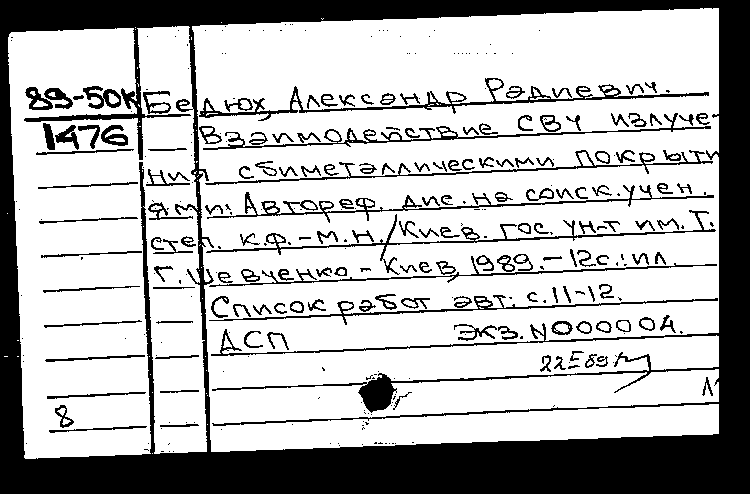 89-50к Бедюх, Александр Радиевич.
1476 Взаимодействие СВЧ излуче-
ния с биметаллическими покрыти
ями: Автореф. дис. на соиск. учен.
степ. к.ф.-м.н. / Киев. гос. ун-т им. Т.
Г. Шевченко. - Киев, 1989. - 12 с.: ил.
Список работ авт.: с. 11-12.
ДСП Экз. N000004.
22 89
8